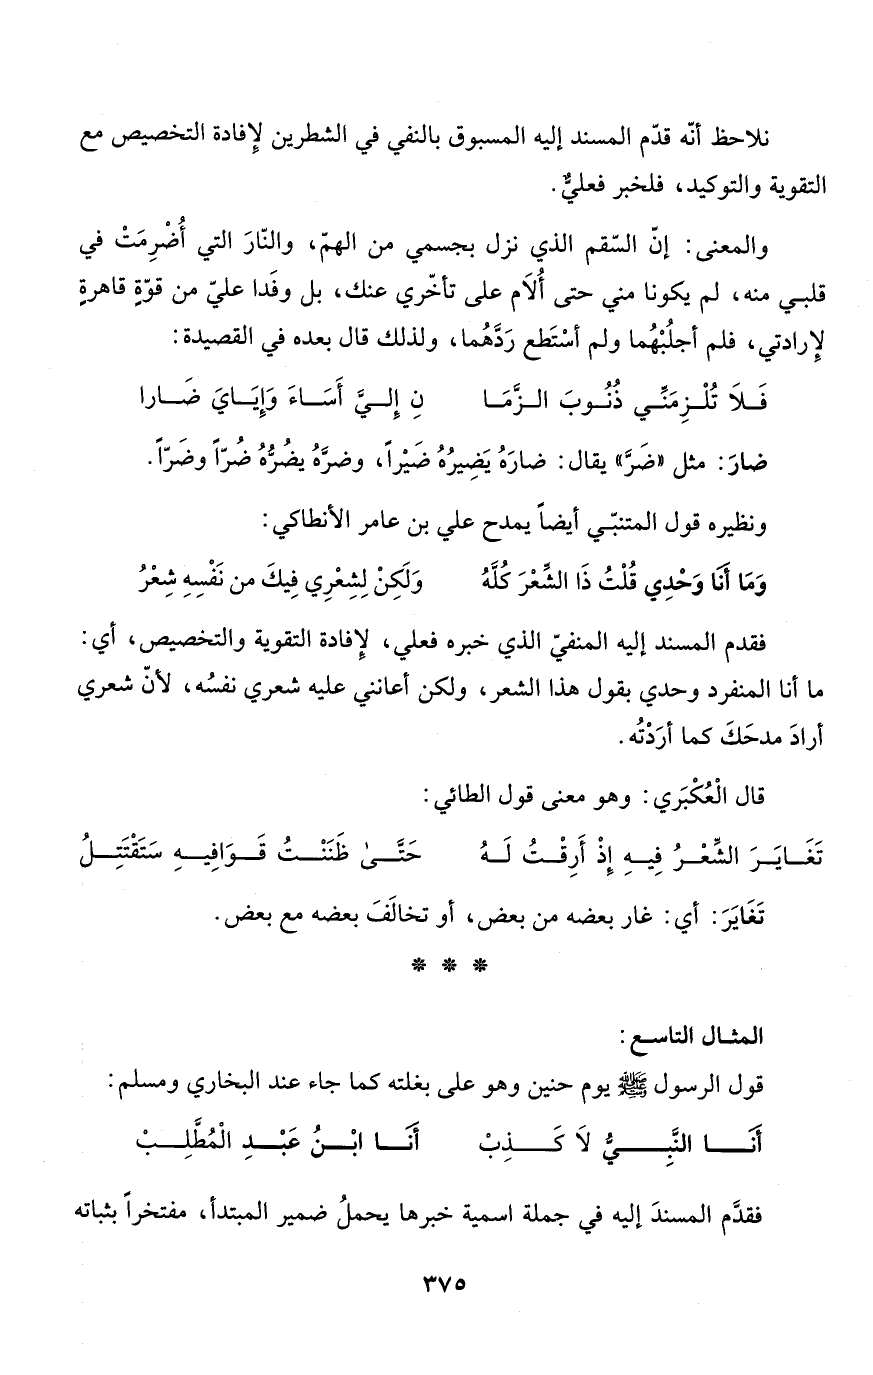 نلاحظ أنّه قدّم المسند إليه المسبوق بالنفي في الشطرين لإفادة التخصيص مع
التقوية والتوكيد، فلخبر فعليٌّ.
والمعنى: إنّ السّقم الذي نزل بجسمي من الهمّ، والنّارَ التي أُضْرِمَتْ في
قلبي منه، لم يكونا مني حتى أُلَام على تأخّري عنك، بل وفَدا عليّ من قوّةٍ قاهرةٍ
لإرادتي، فلم أجلُبْهُما ولم أسْتَطع رَدَّهُما، ولذلك قال بعده في القصيدة:
فَلَا تُلْزِمَنِّي ذُنُوبَ الزَّمَا نِ إِليَّ أَسَاءَ وَإِيَايَ ضَارا
ضارَ: مثل «ضَرَّ» يقال: ضارَهُ يَضِيرُهُ ضَيْراً، وضرَّهُ يضُرُّهُ ضُرّاً وضَرّاً.
ونظيره قول المتنبّي أيضاً يمدح علي بن عامر الأنطاكي:
وَمَا أَنَا وَحْدِي قُلْتُ ذَا الشِّعْرَ كُلَّهُ وَلَكِنْ لِشِعْرِي فِيكَ من نَفْسِهِ شِعْرُ
فقدم المسند إليه المنفيّ الذي خبره فعلي، لإفادة التقوية والتخصيص، أي:
ما أنا المنفرد وحدي بقول هذا الشعر، ولكن أعانني عليه شعري نفسُه، لأنّ شعري
أرادَ مدحَكَ كما أرَدْتُه.
قال الْعُكْبَري: وهو معنى قول الطائي:
تَغَايَرَ الشِّعْرُ فِيهِ إِذْ أَرِقْتُ لَهُ حَتَّىٰ ظَنَنْتُ قَوَافِيهِ سَتَقْتَتِلُ
تَغَايَرَ: أي: غار بعضه من بعض، أو تخالَفَ بعضه مع بعض.
* * *
المثال التاسع:
قول الرسول ﷺ يوم حنين وهو على بغلته كما جاء عند البخاري ومسلم:
أَنَا النَّبِيُّ لَا كَذِبْ أَنَا ابْنُ عَبْدِ الْمُطَّلِبْ
فقدَّم المسندَ إليه في جملة اسمية خبرها يحملُ ضمير المبتدأ، مفتخراً بثباته
٣٧٥